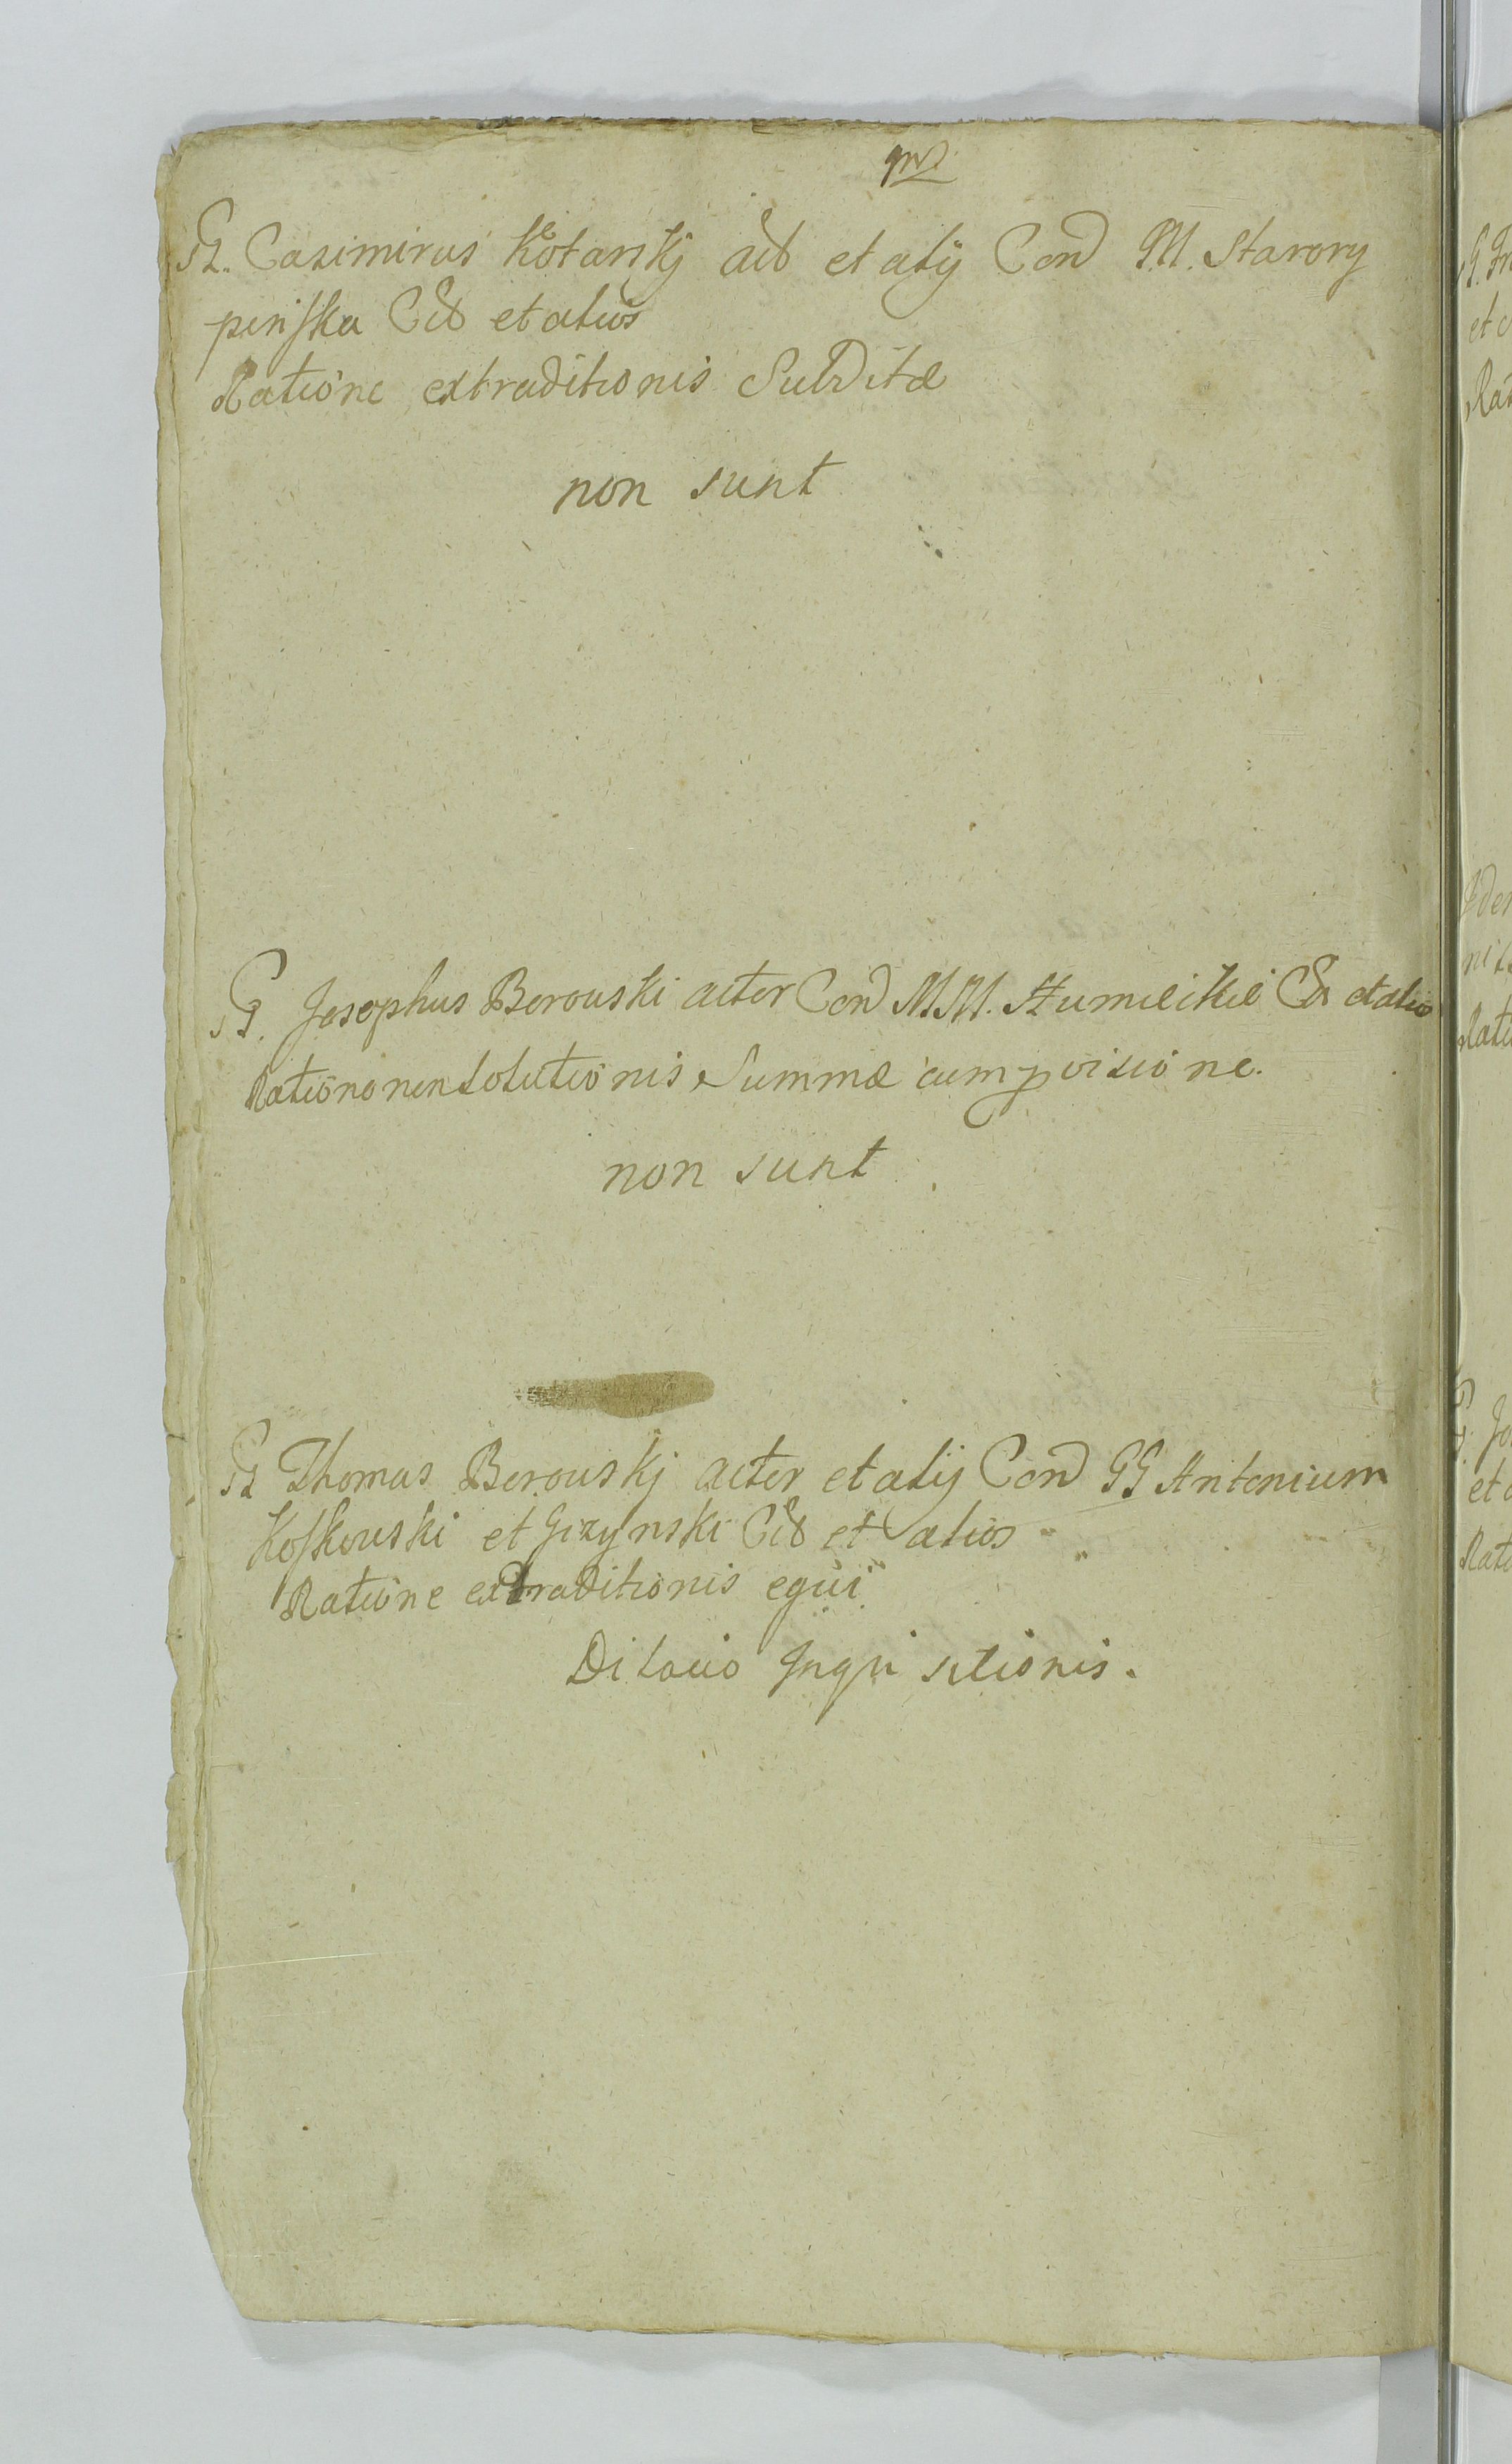 G. Casimirus Kotarskj act et alij Con M. Starory
pinska Cit et alios
Ratione extraditionis Subditæ
non sunt
G. Josephus Borouski actor Con M.M. Humieckie et alios
Ratione non solutionis Summæ cum provisione.
non sunt
G Thomas Borouskj actor et alij Con GG Antonium
Koskouski et Gizynski Cit et alios
Ratione extraditionis equi
Dilacio Inquisitionis.